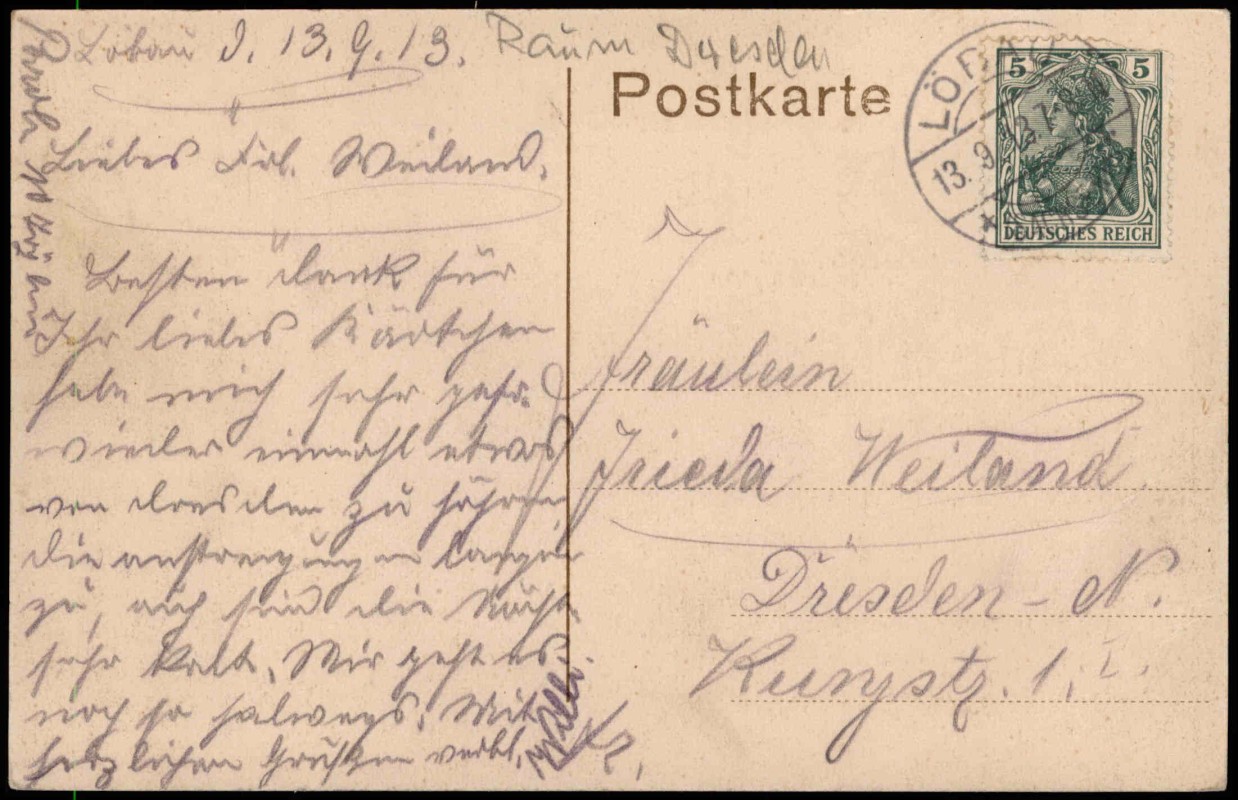 Löbau d. 13.9.13.
Raum Dresden
Postkarte
LÖBAU
13.9.13. 7-8
5 5
DEUTSCHES REICH
Liebes Frl. Weiland.
Besten Dank für
Ihr liebes Kärtchen
habe mich sehr gefr.
wieder einmahl etwas
von Dresden zu hören,
die anstrengungen
zu, auch sind die Nächte
sehr kalt. Mir geht es
noch so halwegs. Mit
herzlichen Grüßen verbl.
Willi
Fräulein
Frieda Weiland
Dresden - N.
Kunzstz. 1. I.